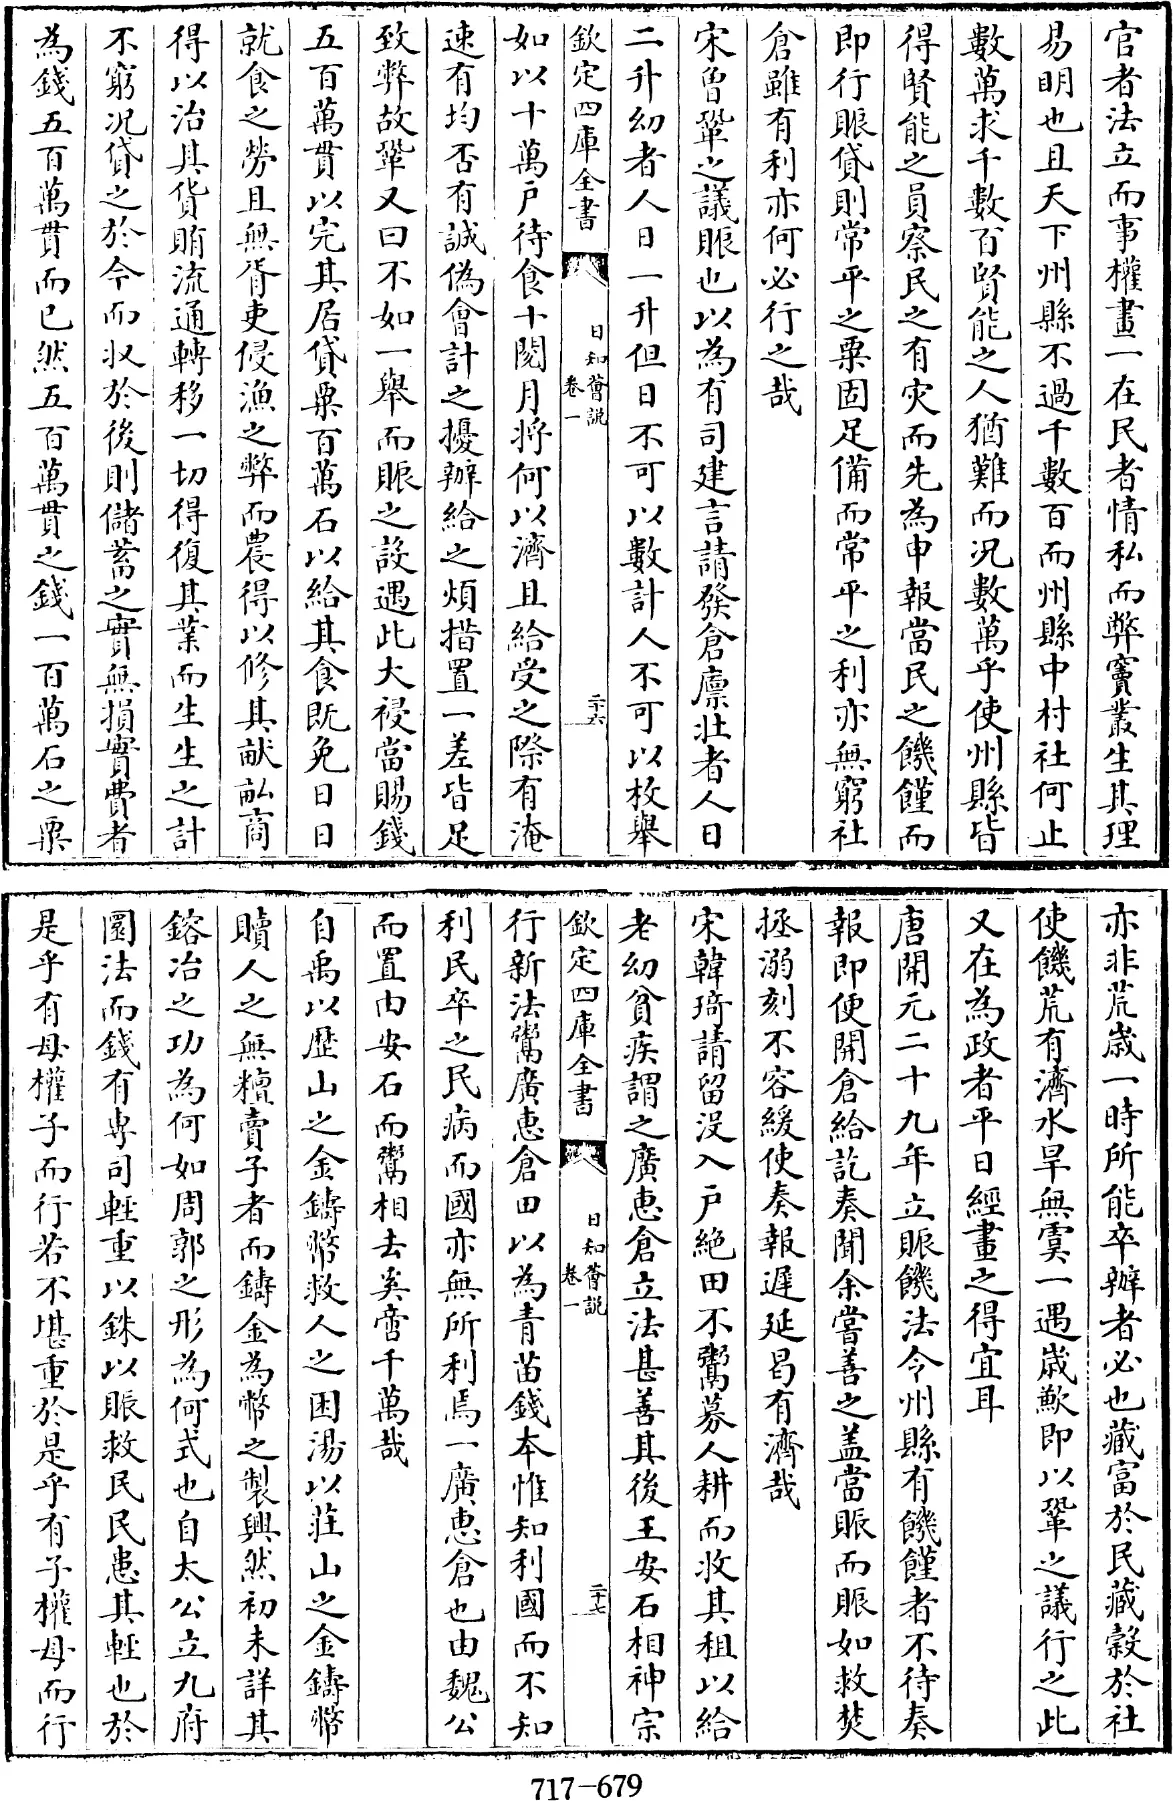 官者法立而事權畫一在民者情私而弊竇叢生其理
易明也且天下州縣不過千數百而州縣中村社何止
數萬求千數百賢能之人猶難而況數萬乎使州縣皆
得賢能之員察民之有灾而先為申報當民之饑饉而
即行賑貸則常平之粟固足備而常平之利亦無窮社
倉雖有利亦何必行之哉
宋曾鞏之議賑也以為有司建言請發倉廪壮者人日
二升幼者人日一升但日不可以數計人不可以枚舉
欽定四庫全書
日知薈説
卷一
二十六
如以十萬户待食十閱月將何以濟且給受之際有淹
速有均否有誠偽會計之擾辦給之煩措置一差皆足
致弊故鞏又曰不如一舉而賑之設遇此大祲當賜錢
五百萬貫以完其居貸粟百萬石以給其食既免日日
就食之勞且無胥吏侵漁之弊而農得以修其畎畝商
得以治其貨賄流通轉移一切得復其業而生生之計
不窮况貸之於今而收於後則儲蓄之實無損實費者
為錢五百萬貫而已然五百萬貫之錢一百萬石之粟
亦非荒歳一時所能卒辦者必也藏富於民藏穀於社
使饑荒有濟水旱無虞一遇歳歉即以鞏之議行之此
又在為政者平日經畫之得宜耳
唐開元二十九年立賑饑法令州縣有饑饉者不待奏
報即便開倉給訖奏聞余嘗善之盖當賑而賑如救焚
拯溺刻不容緩使奏報遲延曷有濟哉
宋韓琦請留没入户絶田不鬻募人耕而收其租以給
老幼貧疾謂之廣惠倉立法甚善其後王安石相神宗
欽定四庫全書
日知薈説
卷一
二十七
行新法鬻廣惠倉田以為青苗錢本惟知利國而不知
利民卒之民病而國亦無所利焉一廣惠倉也由魏公
而置由安石而鬻相去奚啻千萬哉
自禹以歴山之金鑄幣救人之困湯以莊山之金鑄幣
贖人之無𥼷賣子者而鑄金為幣之製興然初未詳其
鎔冶之功為何如周郭之形為何式也自太公立九府
圜法而錢有專司輕重以銖以賑救民民患其輕也於
是乎有母權子而行若不堪重於是乎有子權母而行
717-679